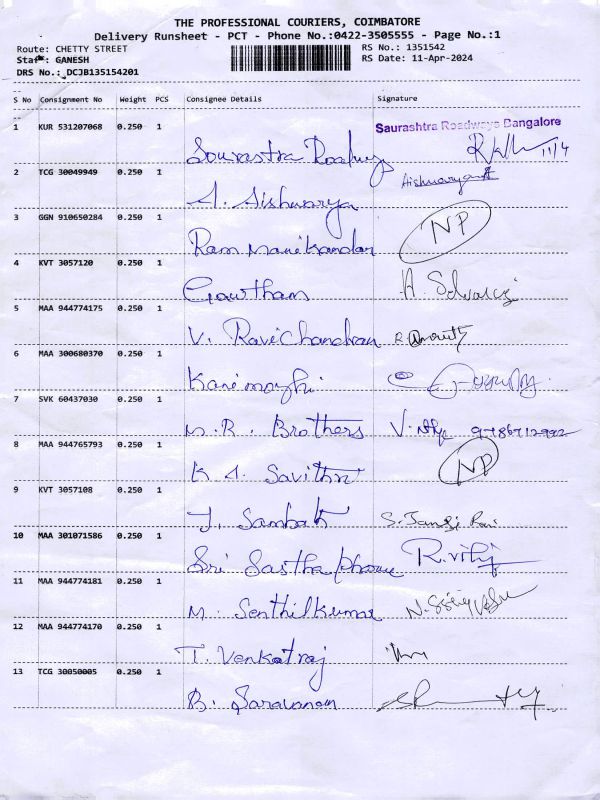 THE PROFESSIONAL COURIERS, COIMBATORE
Delivery Runsheet - PCT - Phone No.:0422-3505555 - Page No.:1
Route: CHETTY STREET RS No.: 1351542
Staff: GANESH RS Date: 11-Apr-2024
DRS No.: DCJB135154201
S No Consignment No Weight PCS Consignee Details Signature
1 KUR 531207068 0.250 1 Saurashtra Roadways Bangalore
Sourastra Roadways 11/4
2 TCG 30049949 0.250 1
A. Aishwarya
3 GGN 910650284 0.250 1 NP
Ram Manikandan
4 KVT 3057120 0.250 1
Gowtham A. Selvaraj
5 MAA 944774175 0.250 1
V. RaviChandran
6 MAA 300680370 0.250 1
Kanimozhi
7 SVK 60437030 0.250 1
M.R. Brothers
8 MAA 944765793 0.250 1 NP
K A. Savithri
9 KVT 3057108 0.250 1
J. Sambath
10 MAA 301071586 0.250 1
Sri Sastha
11 MAA 944774181 0.250 1
M. Senthilkumar
12 MAA 944774170 0.250 1
T. Venkatraj
13 TCG 30050005 0.250 1
B. Saravanan